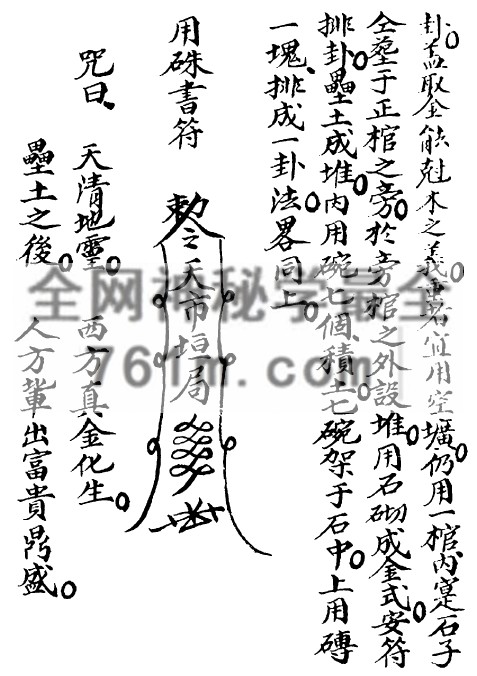 卦。盖取金能尅木之義。畫若宜用空壙。仍用一棺內寔石子
仝塟于正棺之旁。於旁棺之外設堆。用石砌成金式。安符
排卦。壘土成堆。內用碗七個、積土七碗架于石中。上用磚
一塊、排成一卦法。畧同上。
用硃書符
敕令天市垣局
咒曰、天清地靈。西方真金化生。
壘土之後。人方輩出富貴鼎盛。
全网神秘学最全
761m.com